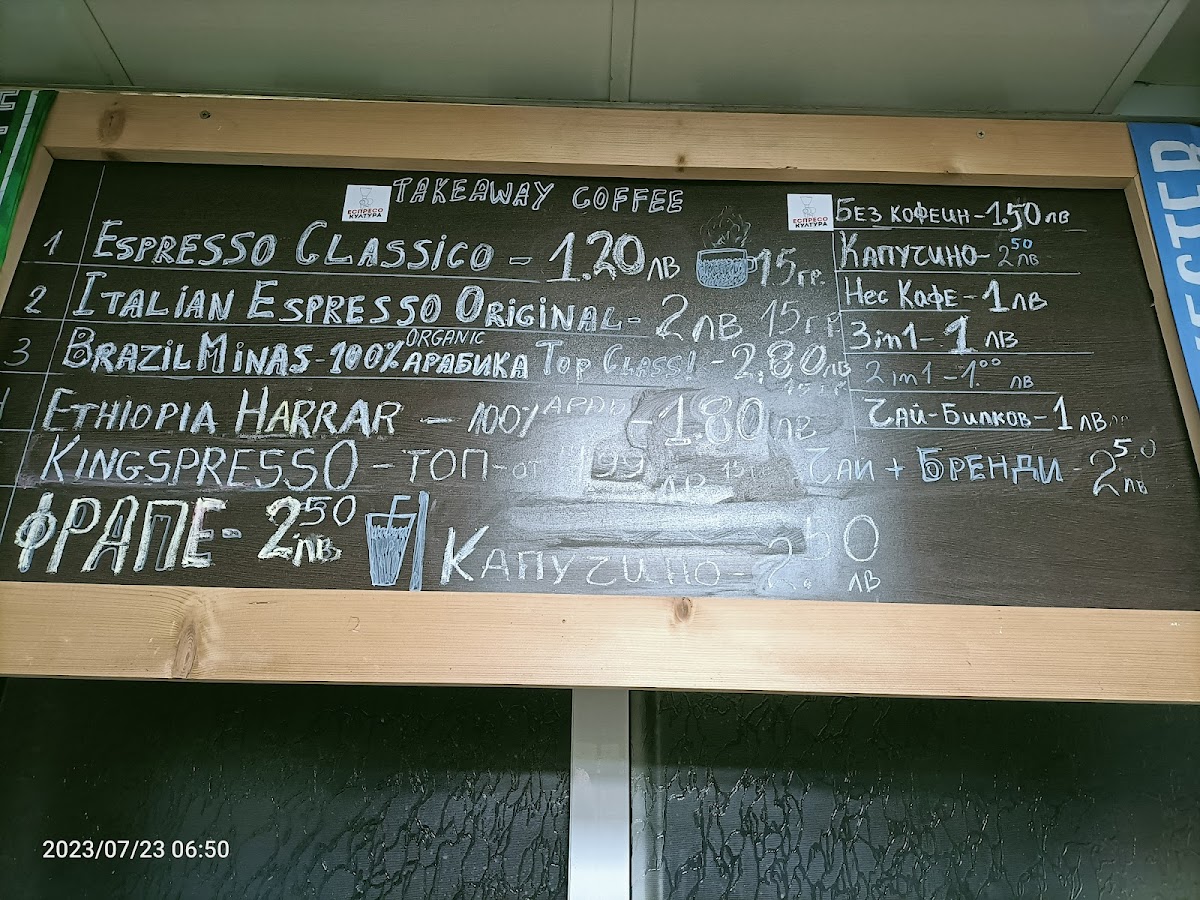 TAKEAWAY COFFEE
ЕСПРЕСО
КУЛТУРА
1 ESPRESSO CLASSICO - 1.20 лв 15 гр.
2 ITALIAN ESPRESSO ORIGINAL - 2 лв 15 гр
3 BRAZIL MINAS - 100% ORGANIC АРАБИКА TOP CLASS! - 2,80 лв
15 гр
ETHIOPIA HARRAR - 100% АРАБ - 1.80 лв
KINGSPRESSO - ТОП - от 1,99 лв 15
ФРАПЕ - 2.50 лв.
КАПУЧИНО - 2.50 лв
ЕСПРЕСО
КУЛТУРА
БЕЗ КОФЕИН - 1.50 лв
КАПУЧИНО - 2 50 лв
НЕС КАФЕ - 1 лв
3in1 - 1 лв
2in1 - 1.00 лв
ЧАЙ - БИЛКОВ - 1 лв
ЧАЙ + БРЕНДИ - 2 50 лв
2023/07/23 06:50